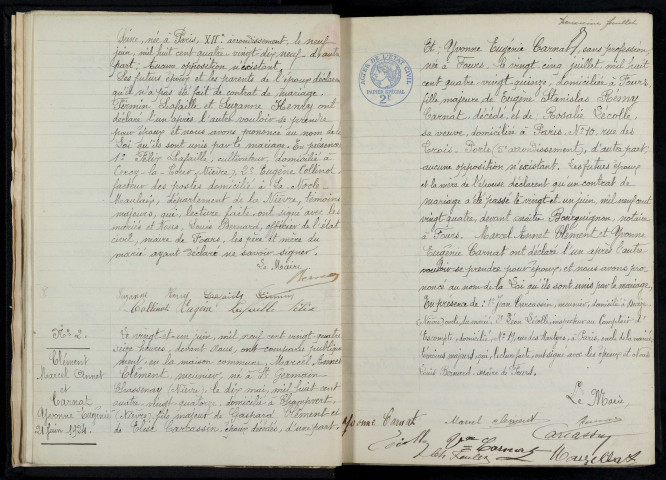 Sière, née à Paris, XIIe arrondissement, le neuf
juin, mil huit cent quatre-vingt-dix neuf d'autre
part; Aucune opposition n'existant.
Les futurs époux et les parents de l'époux déclarent
qu'il n'a pas été fait de contrat de mariage.
Firmin Lafaille et Suzanne Henry ont
déclaré l'un après l'autre vouloir se prendre
pour époux et nous avons prononcé au nom de la
Loi qu'ils sont unis par le mariage. En présence
1° Félix Lafaille, cultivateur, domicilié à
Cercy-la-Tour (Nièvre), 2° Eugène Collenot
facteur des postes domicilié à La Nocle-
Maulaix, département de la Nièvre, témoins
majeurs, qui, lecture faite ont signé avec les
mariés et Nous, Louis Bernard, officier de l'état
civil, maire de Fours, les père et mère du
marié ayant déclaré ne savoir signer.
Le Maire
Suzanne Henry Lafaille Firmin
Collenot Eugène Lafaille Félix
No 2
Clément
Marcel Annet
et
Carnat
Yvonne Eugénie
21 juin 1924
Le vingt-et-un juin, mil neuf cent vingt-quatre
seize heures, devant Nous, ont comparu publique
ment en la maison commune, Marcel Annet
Clément, meunier, né à St Germain-
Chassenay (Nièvre), le dix mai, mil huit cent
quatre vingt-quatorze, domicilié à Champvert,
(Nièvre) fils majeur de Gaspard Clément et
de Elise Carcassin, époux décédés, d'une part,
ACTES DE L'ETAT CIVIL
PAPIER SPÉCIAL
2F
Et Yvonne Eugénie Carnat, sans profession,
née à Fours, le vingt cinq juillet mil huit
cent quatre vingt-quinze, domiciliée à Fours,
fille majeure de Eugène Stanislas Rémy
Carnat, décédé et de Rosalie Lécolle,
sa veuve domiciliée à Paris, No 10, rue des
Trois-Portes (5e arrondissement), d'autre part,
aucune opposition n'existant. Les futurs époux
et la mère de l'épouse déclarent qu'un contrat de
mariage a été passé le vingt et un juin, mil neuf cent
vingt-quatre, devant maître Bourguignon notaire
à Fours. Marcel Annet Clément et Yvonne
Eugénie Carnat ont déclaré l'un après l'autre
vouloir se prendre pour époux et nous avons pro
noncé au nom de la Loi qu'ils sont unis par le mariage,
En présence de: 1° Jean Carcassin, meunier, domicilié à
Louis Bernard, maire de Fours.
Le Maire
Yvonne Carnat
Marcel Clément
Carcassin
Carnat